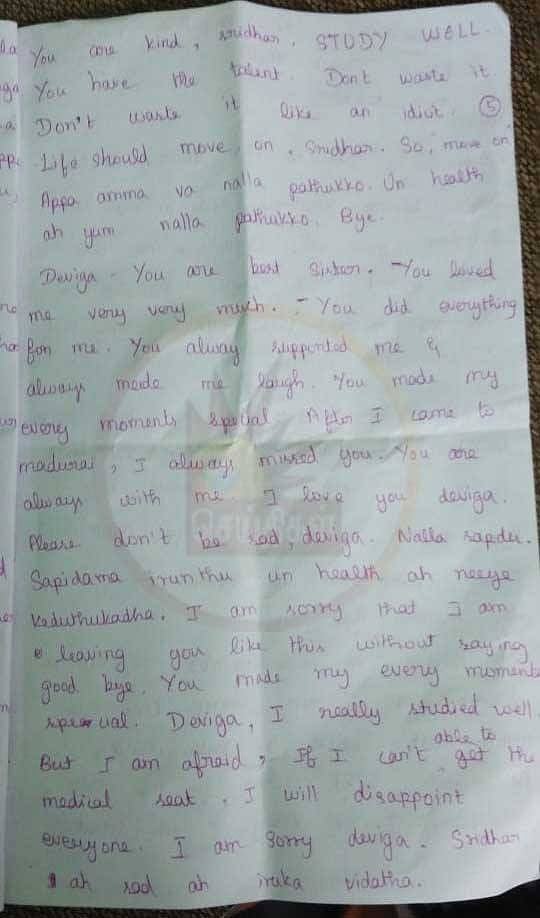 You are kind, sridhar. STUDY WELL.
You have the talent. Dont waste it
Don't waste it like an idiot. 5
Life should move on, Sridhar. So, move on
Appa amma va nalla pathukko. Un health
ah yum nalla pathukko. Bye.
Deviga - You are best sister. You loved
me very very much. - You did everything
for me. You alway supported me &
always made me laugh. You made my
every moments special After I came to
madurai, I always missed you. You are
always with me. I love you deviga.
Please don't be sad, deviga. Nalla sapdu.
Sapidama irunthu un health ah neeye
keduthukadha. I am sorry that I am
leaving you like this without saying
good bye. You made my every moments
spe ual. Deviga, I really studied well.
But I am afraid, If I can't able to get the
medical seat, I will disappoint
everyone. I am sorry deviga. Sridhar
ah sad ah iruka vidatha.